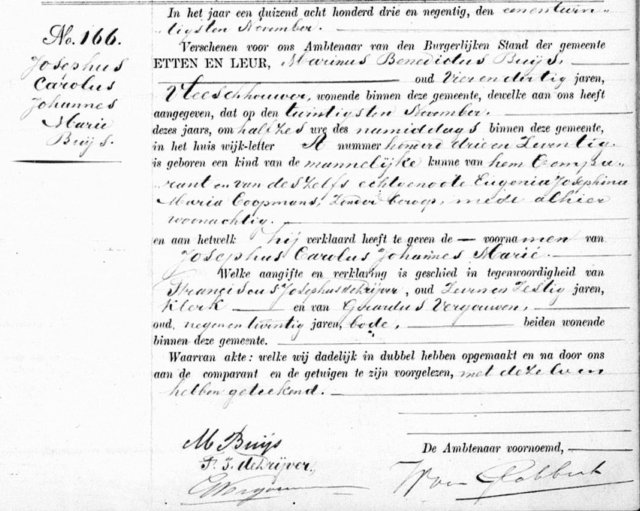 No. 166.
Josephus
Carolus
Johannes
Marie
Buijs.
In het jaar een duizend acht honderd drie en negentig, den eenentwin-
tigsten November.
Verschenen voor ons Ambtenaar van den Burgerlijken Stand der gemeente
ETTEN EN LEUR, Marinus Benedictus Buijs,
oud Vierendertig jaren,
Vleeschhouwer, wonende binnen deze gemeente, dewelke aan ons heeft
aangegeven, dat op den twintigsten November
dezes jaars, om half zes ure des namiddags binnen deze gemeente,
in het huis wijk-letter A nummer honderd drie en zeventig
is geboren een kind van de mannelijke kunne van hem Compa-
rant en van deszelfs echtgenoote Eugenia Josephina
Maria Coopmans, zonder beroep, mede alhier
woonachtig.
en aan hetwelk hij verklaard heeft te geven de voornamen van
Josephus Carolus Johannes Marie.
Welke aangifte en verklaring is geschied in tegenwoordigheid van
Franciscus Josephus de Krijver, oud zeven en zestig jaren,
Klerk en van Gerardus Vergouwen,
oud, negenentwintig jaren, bode, beiden wonende
binnen deze gemeente.
Waarvan akte: welke wij dadelijk in dubbel hebben opgemaakt en na door ons
aan de comparant en de getuigen te zijn voorgelezen, met dezelven
hebben geteekend.
M Buijs
De Ambtenaar voornoemd,